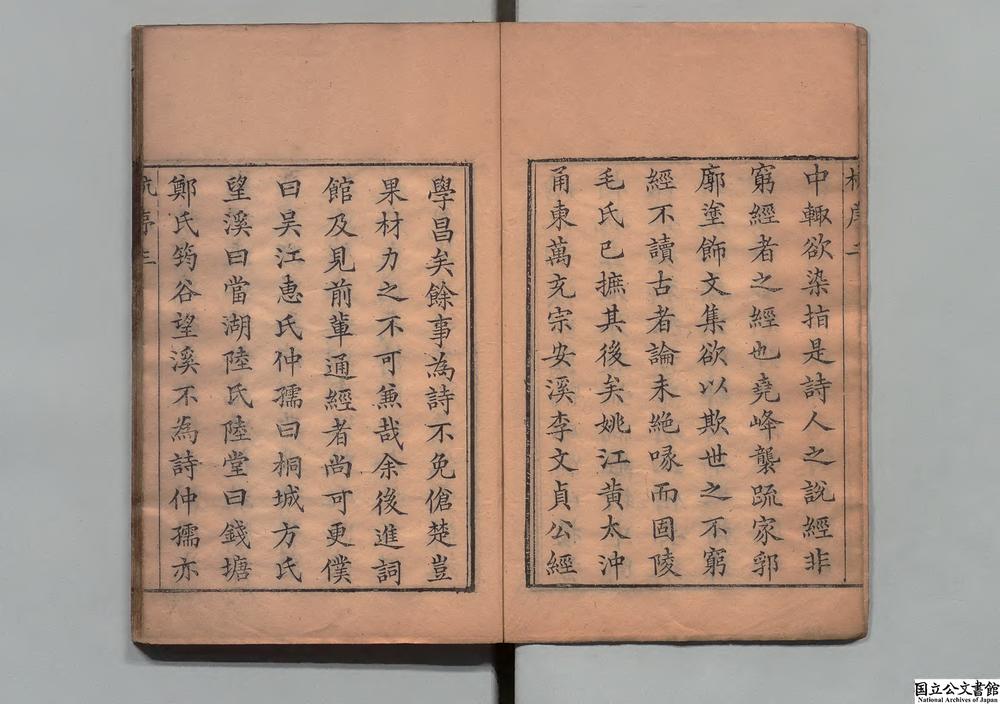 中輙欲染指是詩人之說經非
窮經者之經也堯峰襲䟽家郛
廓塗飾文集欲以欺世之不窮
經不讀古者論未絶喙而固陵
毛氏已摭其後矣姚江黄太沖
甬東萬充宗安溪李文貞公經
學昌矣餘事為詩不免傖楚豈
果材力之不可兼哉余後進詞
館及見前軰通經者尚可更僕
曰吴江惠氏仲孺曰桐城方氏
望溪曰當湖陸氏陸堂曰錢塘
鄭氏筠谷望溪不為詩仲孺亦
杭序三
国立公文書館
National Archives of Japan